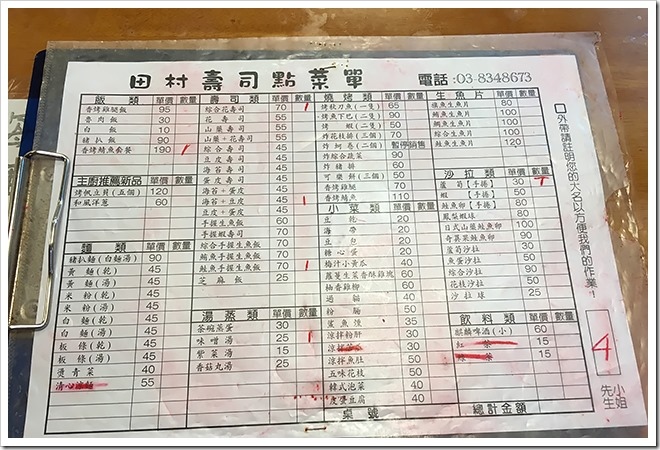 田村壽司點菜單 電話:03-8348673
飯類 單價 數量
香烤雞腿飯 95
魯肉飯 30
白飯 10
豬扒飯 90
香烤鯖魚套餐 190
主廚推薦新品 單價 數量
烤帆立貝(五個) 120
和風洋蔥 60
麵類 單價 數量
豬扒麵(白麵湯) 90
黃麵(乾) 45
黃麵(湯) 45
米粉(乾) 45
米粉(湯) 45
白麵(乾) 45
白麵(湯) 45
板條(乾) 45
板條(湯) 45
燙青菜 40
清心涼麵 55
壽司類 單價 數量
綜合花壽司 70
花壽司 55
山藥壽司 55
山藥+花壽司 55
綜合壽司 45
豆皮壽司 45
海苔壽司 45
海苔+蛋皮 45
海苔+豆皮 45
豆皮+蛋皮 45
蛋皮壽司 45
手握生魚壽司
手握蝦壽司
綜合手握生魚飯 70
鮪魚手握生魚飯 70
鮭魚手握生魚飯 70
芝麻飯 25
湯蒸類 單價 數量
茶碗蒸蛋 30
味噌湯 25
紫菜湯 30
香菇丸湯 25
燒烤類 單價 數量
烤秋刀魚(一隻) 65
烤魚下巴(一隻) 90
烤蝦(二串)
炸花枝排(三個)
炸蚵卷(二個) 暫停銷售
炸綜合蔬菜
炸豬排
可樂餅(三個)
香烤雞腿
香烤鯖魚 110
小菜類 單價 數量
豆乾 20
海帶 20
豆包 20
糖心蛋 20
梅汁小黃瓜 40
蘿蔓生菜香酥雞塊 60
柚香雞柳 60
過貓 40
粉腸 40
鯊魚煙 35
涼拌粉肝 40
涼拌魚肚 50
五味花枝 50
韓式泡菜 40
皮蛋豆腐 40
桌號
生魚片 單價 數量
旗魚生魚片 80
鮪魚生魚片 100
鯛魚生魚片 100
綜合生魚片 100
鮭魚生魚片 120
沙拉類 單價 數量
蘆筍[手捲] 30
蝦[手捲] 40
鮭魚卵[手捲] 60
鳳梨蝦球
日式山藥鮭魚卵
奇異菜鮭魚卵
蘆筍沙拉
魚蛋沙拉
綜合沙拉
花枝沙拉
沙拉球 25
飲料類 單價 數量
麒麟啤酒(小) 60
紅茶 15
綠茶 15
總計金額
□外帶請註明您的大名以方便我們的作業!
4
先生
小姐